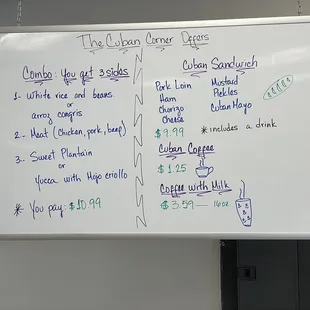 The Cuban Corner Offers
Combo: You get 3 sides
1- White rice and beans
or
arroz congris
2- Meat (Chicken, pork, beef)
3- Sweet Plantain
or
Yucca with Mojo criollo
* You pay: $10.99
Cuban Sandwich
Pork Loin Mustard
Ham Pickles
Chorizo Cuban Mayo
Cheese
$9.99 *includes a drink
Cuban Coffee
$1.25
Coffee with Milk
$3.59 — 16oz